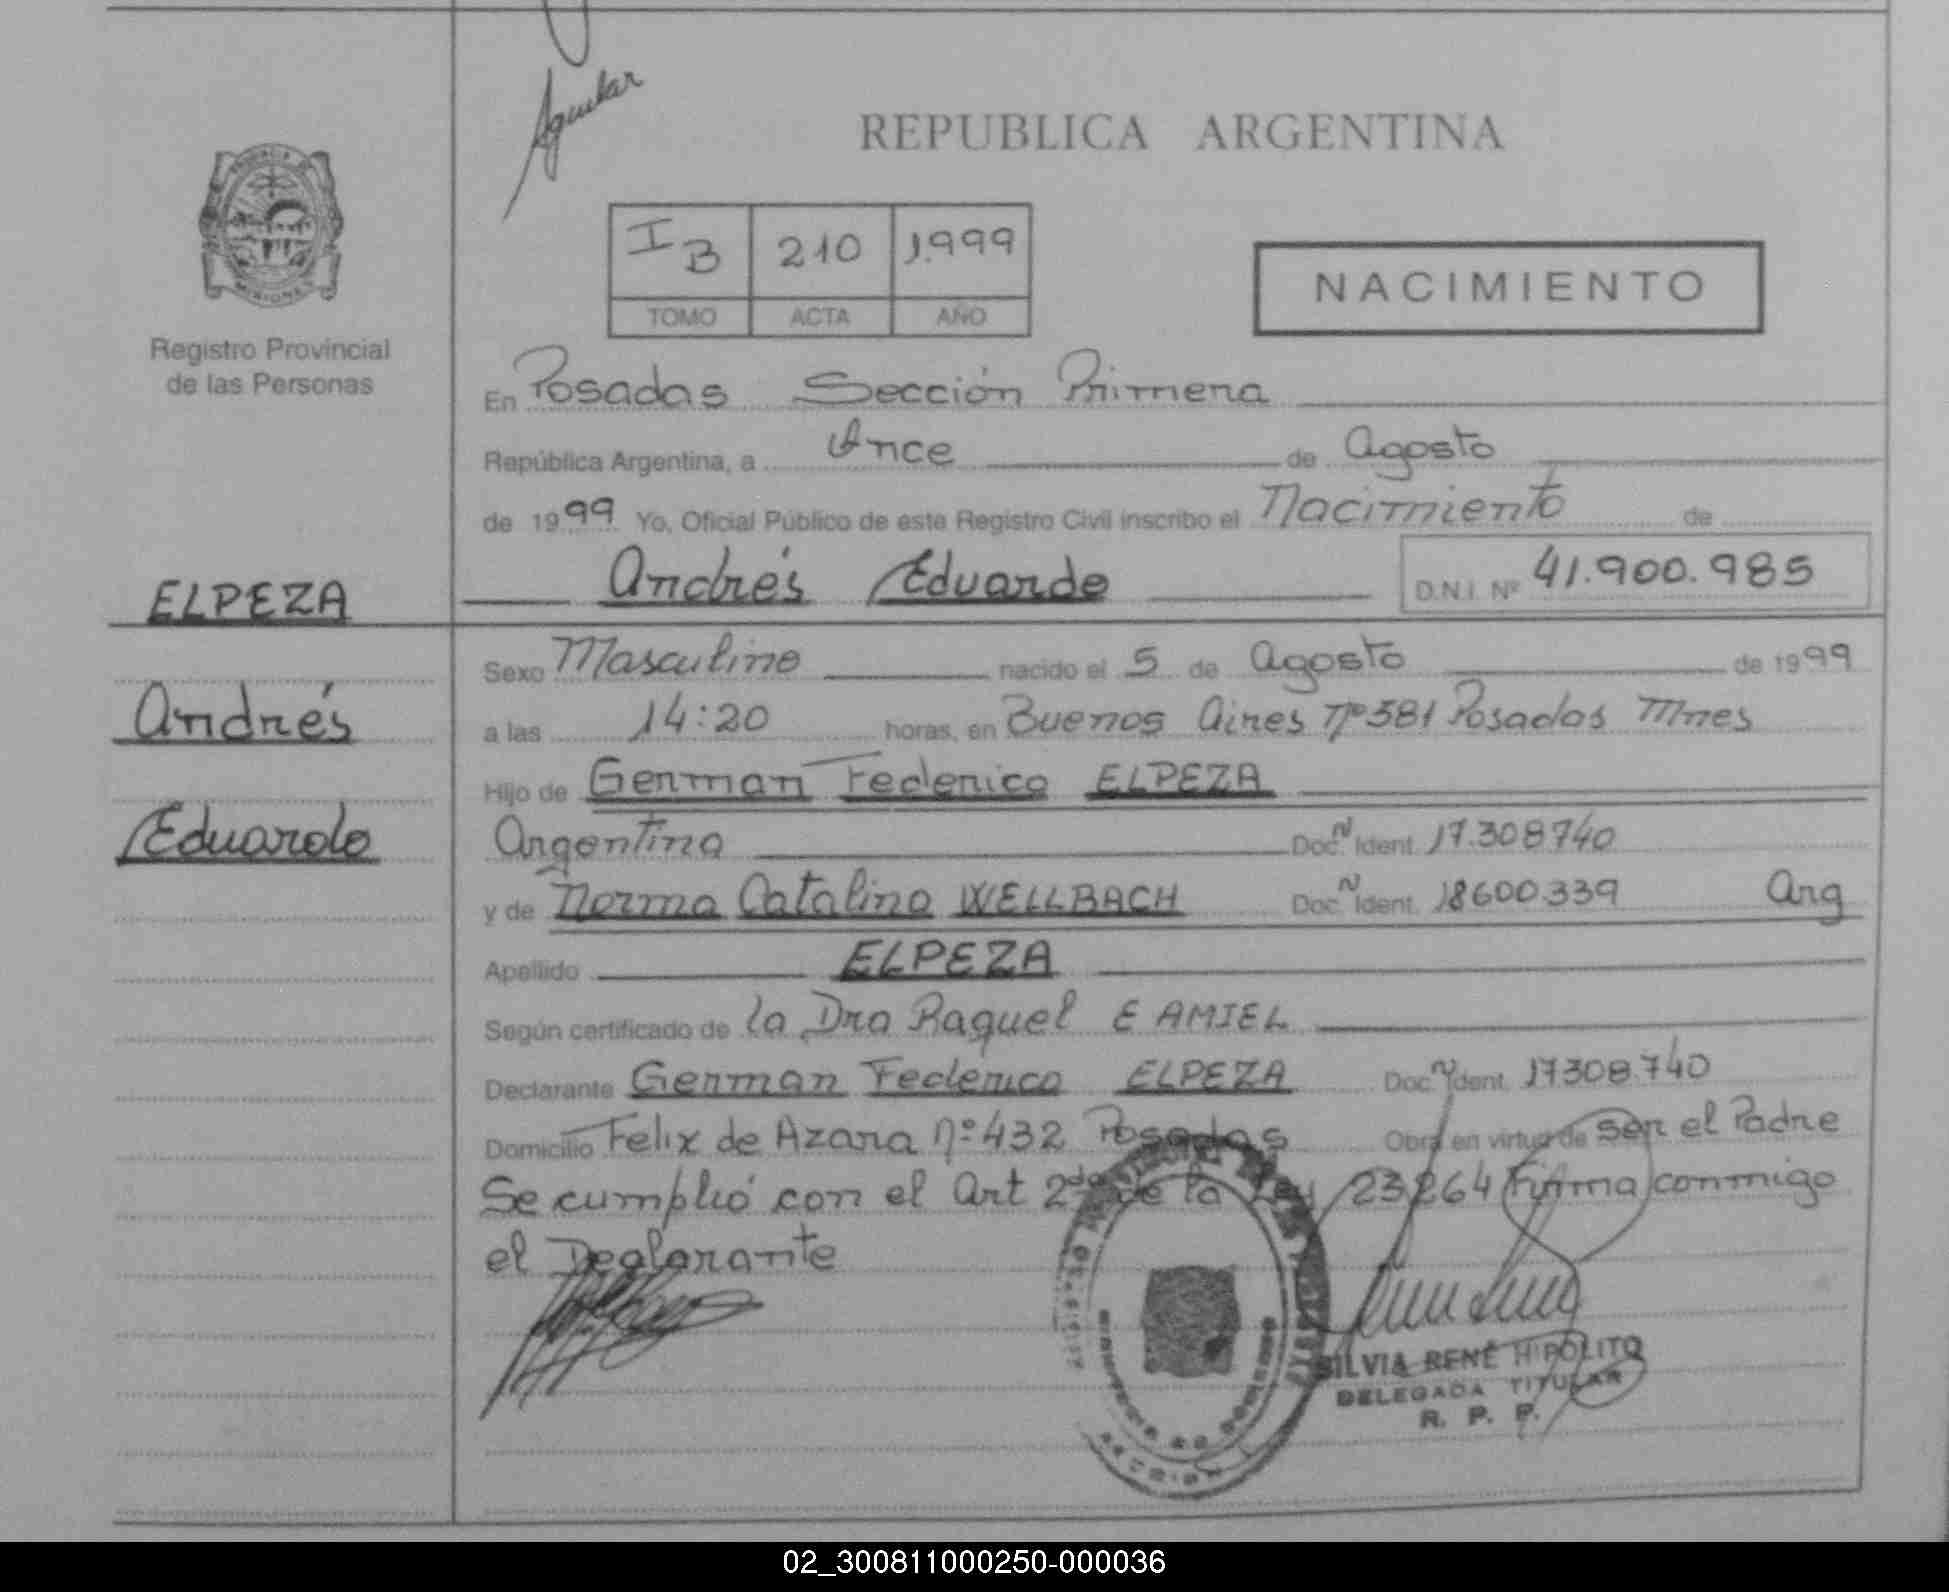 Aguilar
REPUBLICA ARGENTINA
MISIONES
Registro Provincial
de las Personas
I B 210 1.999
TOMO ACTA AÑO
NACIMIENTO
En Posadas Sección Primera
República Argentina, a Once de Agosto
de 1999 Yo, Oficial Público de este Registro Civil inscribo el Nacimiento de
Andrés Eduardo D.N.I. Nº 41.900.985
ELPEZA
Andrés
Eduardo
Sexo Masculino nacido el 5 de Agosto de 1999
a las 14:20 horas, en Buenos Aires Nº 381 Posadas Mnes
Hijo de German Federico ELPEZA
Argentino Doc. N Ident. 17.308740
y de Norma Catalina WELLBACH Doc. N Ident. 18600.339 Arg
Apellido ELPEZA
Según certificado de la Dra Raquel E AMIEL
Declarante German Federico ELPEZA Doc. N Ident. 17308.740
Domicilio Felix de Azara Nº 432 Posadas Obra en virtud de ser el Padre
Se cumplió con el Art 2do de la Ley 23264 Firma conmigo
el Declarante
SILVIA RENÉ HIPOLITO
DELEGADA TITULAR
R. P. P.
02_300811000250-000036